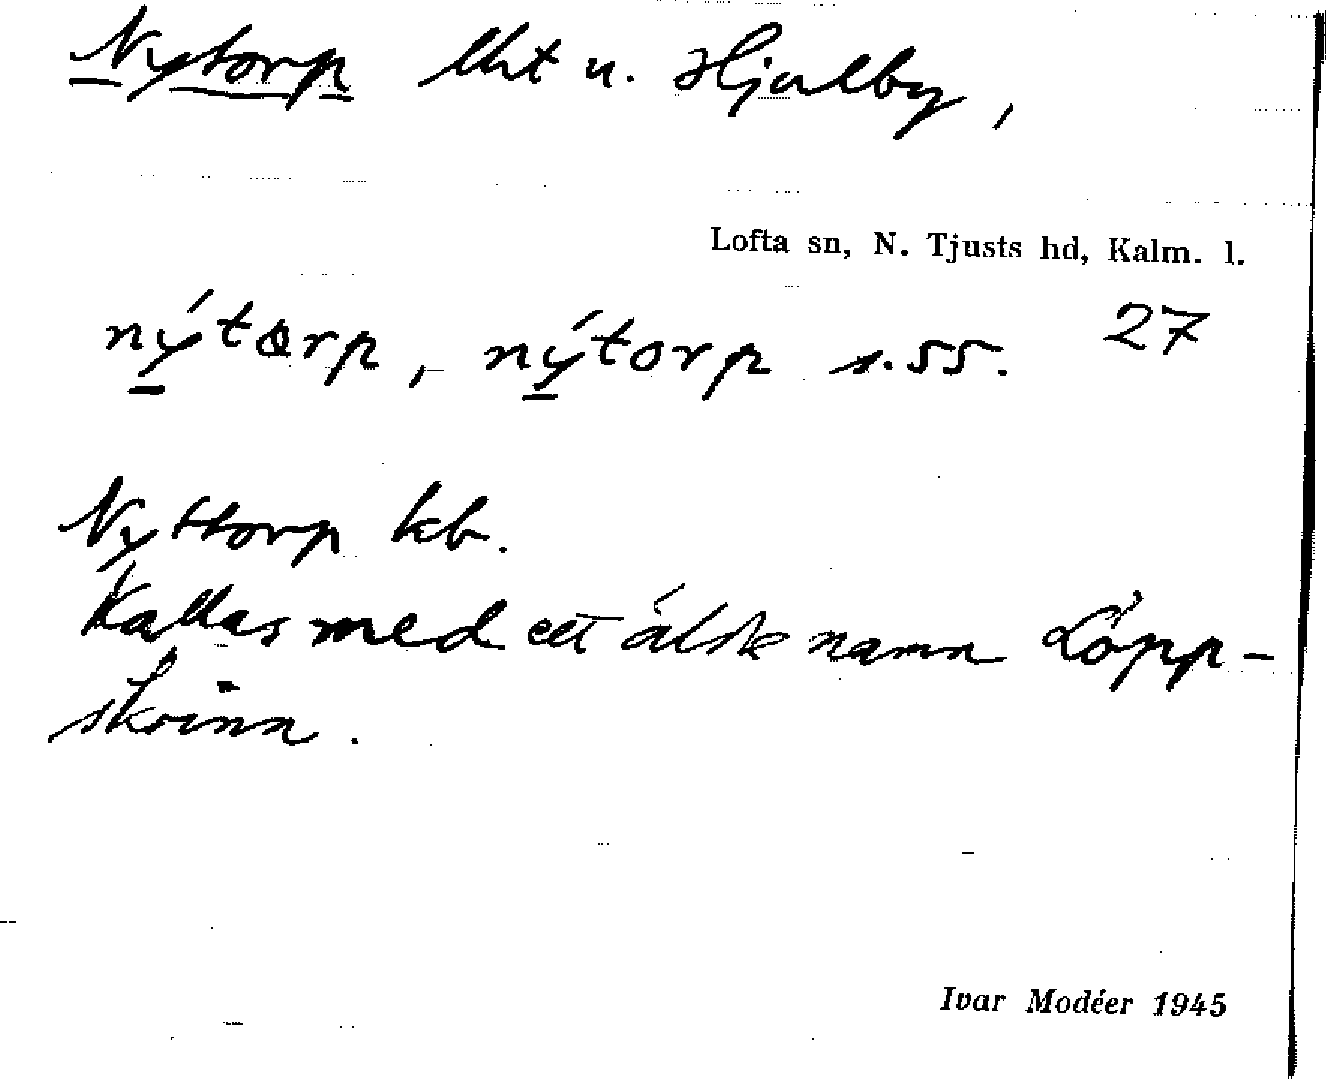 Nytorp lht u. Hjalby,
Lofta sn, N. Tjusts hd, Kalm. l.
nýtørp, nýtorp s.55. 27
Nyttorp kb.
Kallas med ett älsk namn Löpp-
skinn.
Ivar Modéer 1945